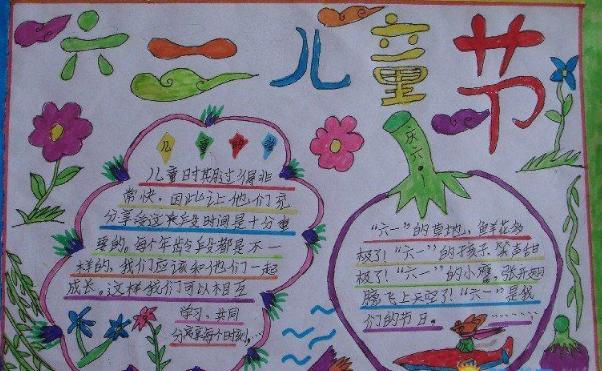 六一儿童节
儿童时节
儿童时期过得非
常快,因此让他们充
分享受这段时间是十分重
要的,每个年龄段都是不一
样的,我们应该和他们一起
成长,这样我们可以相互
学习、共同
分享每个时刻…
庆六一
"六一"的草地,鲜花多
极了!"六一"的孩子,笑声甜
极了!"六一"的小鹰,张开翅
膀飞上天空了!"六一"是我
们的节日。………